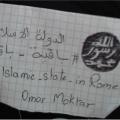 الدولة الاسلامية
باقية
الله
رسول
محمد
Islamic_state_in Rome
Omar Moktar